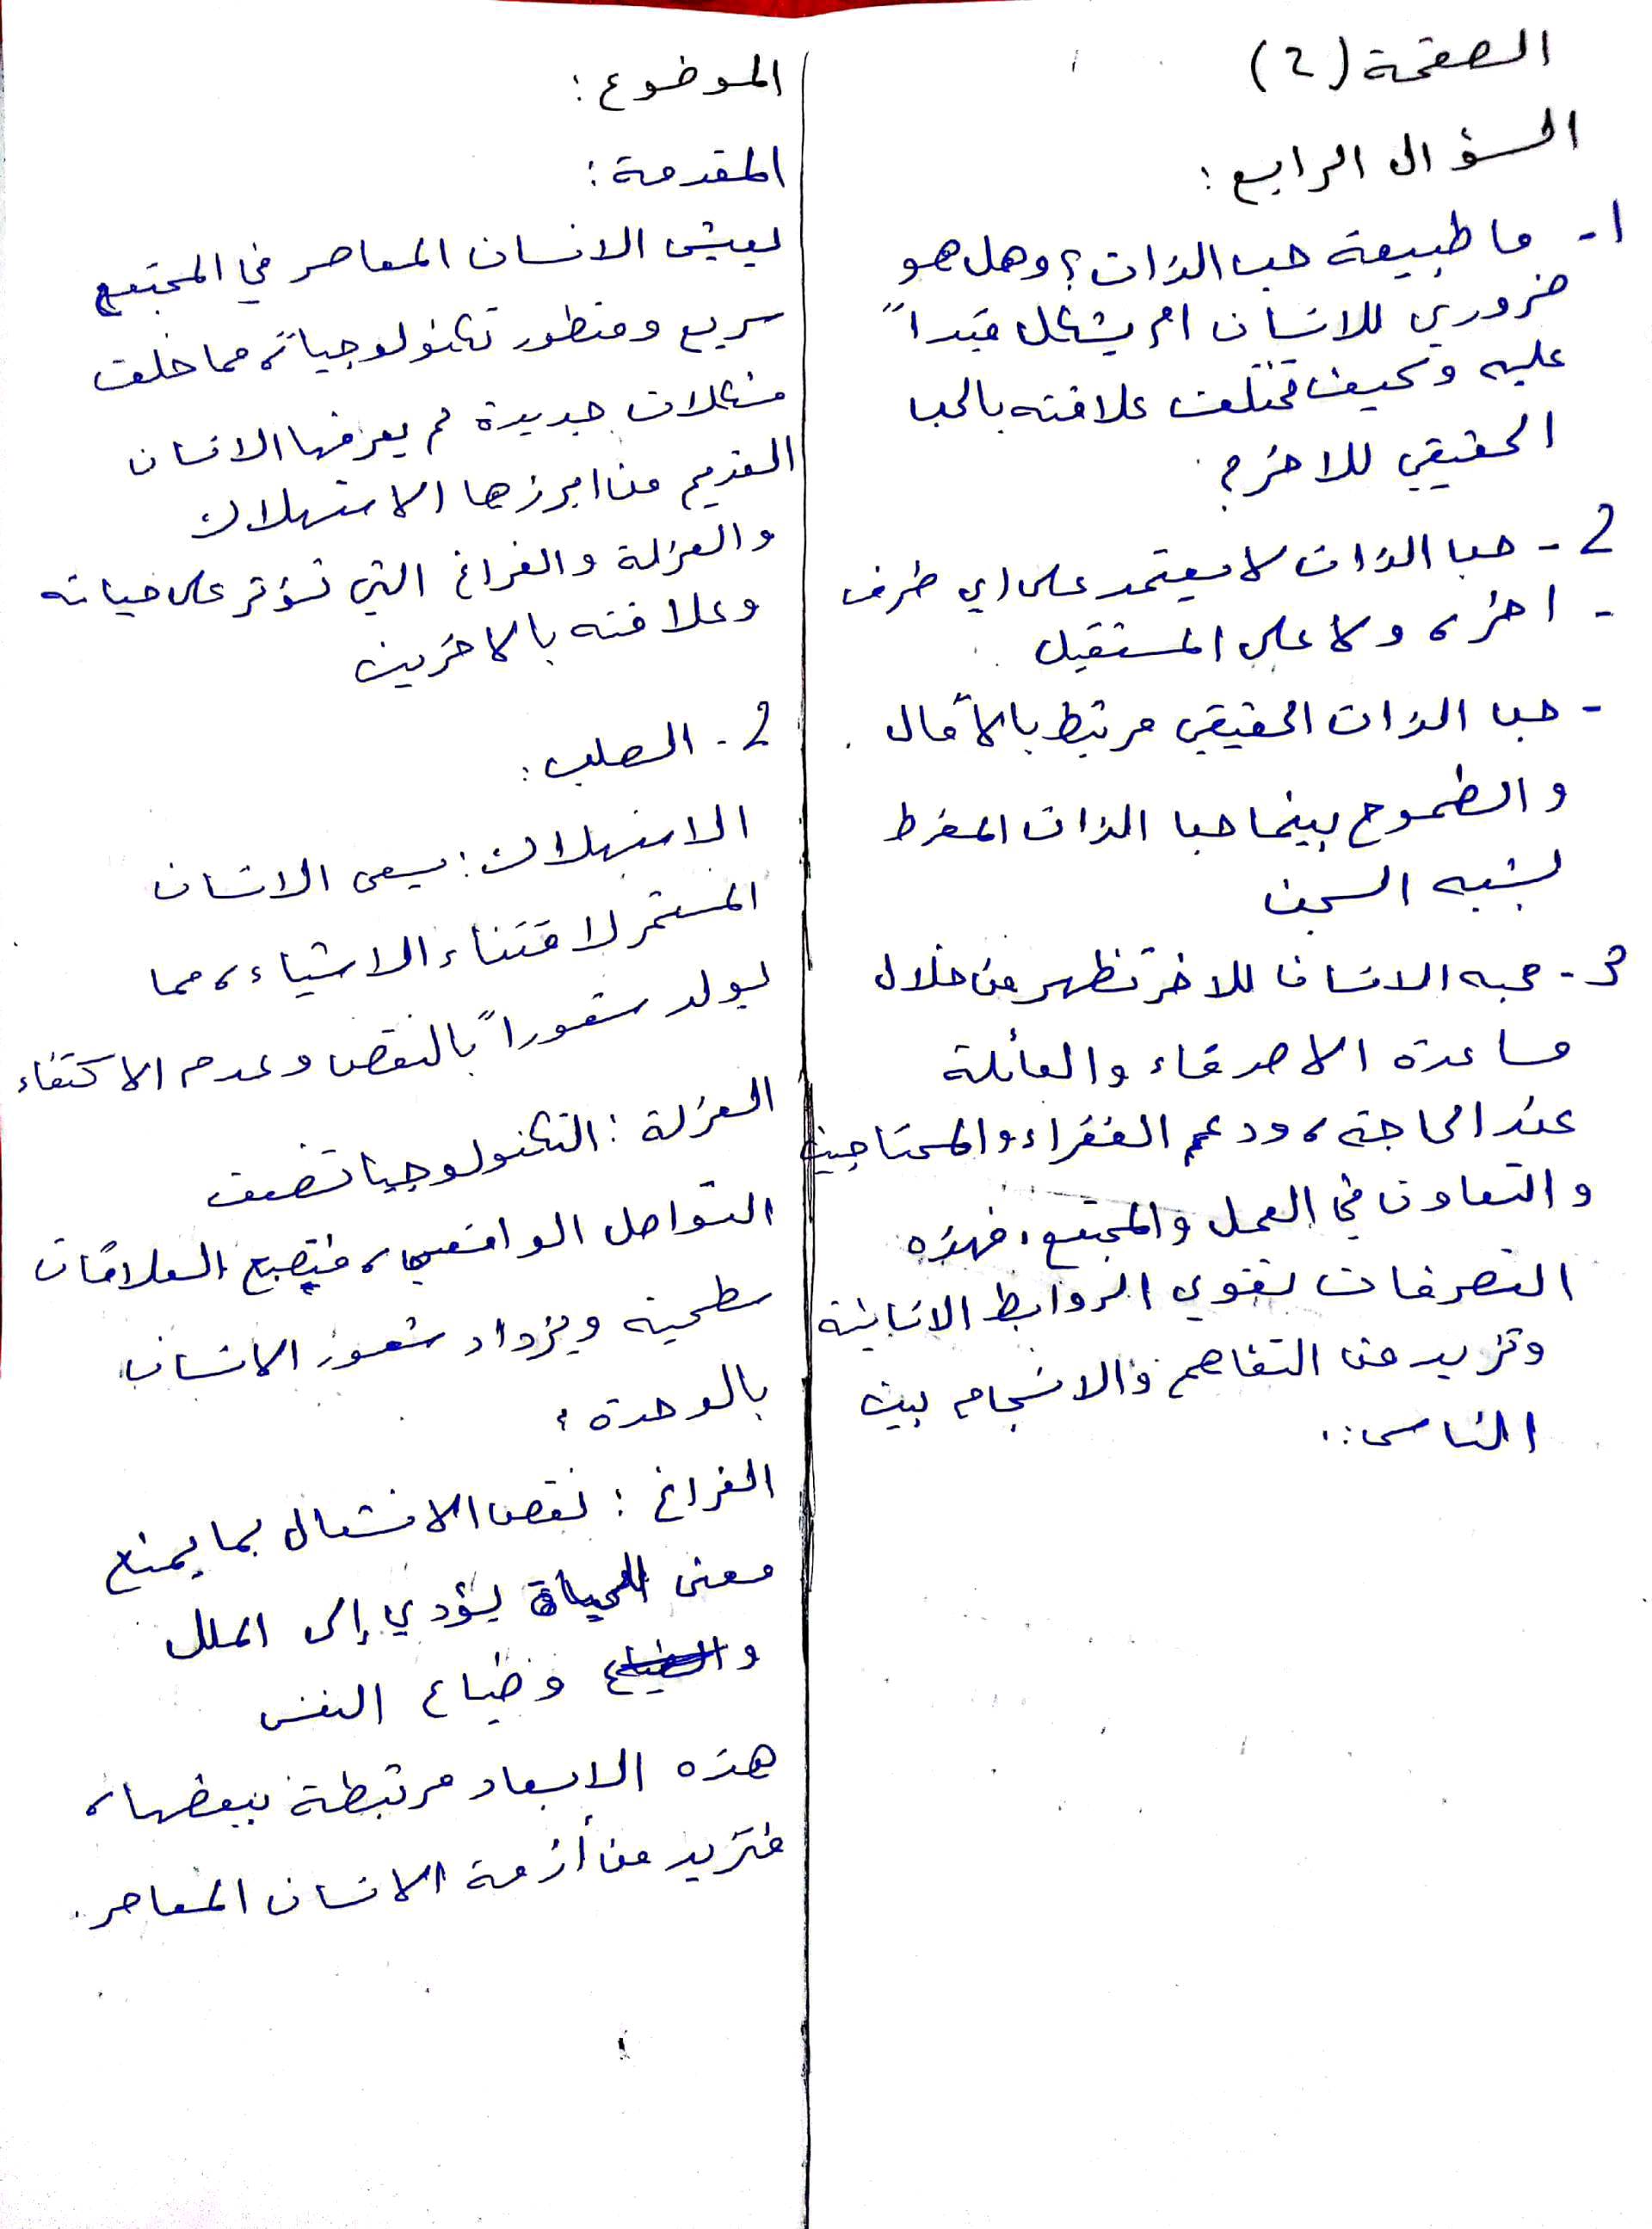 الصفحة (2)
السؤال الرابع :
1- ما طبيعة حب الذات ؟ وهل هو
ضروري للانسان ام يشكل قيداً
عليه وكيف تختلف علاقته بالحب
الحقيقي للاخر ؟
2- حب الذات لا يعتمد على اي طرف
- اخر، ولا على المستقبل
- حب الذات الحقيقي مرتبط بالآمال
والطموح بينما حب الذات المفرط
يشبه السجن
3- محبه الانسان للاخر تظهر من خلال
مساعدة الاصدقاء والعائلة
عند الحاجة، ودعم الفقراء والمحتاجين
والتعاون في العمل والمجتمع، فهذه
التصرفات تقوي الروابط الانسانية
وتزيد من التفاهم والانسجام بين
الناس ..
الموضوع :
المقدمة :
يعيش الانسان المعاصر في المجتمع
سريع ومتطور تكنولوجياً، مما خلق
مشكلات جديدة لم يعرفها الانسان
القديم من ابرزها الاستهلاك
والعزلة والفراغ التي تؤثر على حياته
وعلاقته بالاخرين
2- الصلب :
الاستهلاك : يسعى الانسان
المستمر لاقتناء الاشياء، مما
يولد شعوراً بالنقص وعدم الاكتفاء
العزلة : التكنولوجيا تضعف
التواصل الواقعي، فتصبح العلاقات
سطحية ويزداد شعور الانسان
بالوحدة ،
الفراغ : نقص الانشغال بما يمنع
معنى الحياة يؤدي إلى الملل
والضياع وضياع النفس
هذه الابعاد مرتبطة ببعضها،
فتزيد من أزمة الانسان المعاصر.